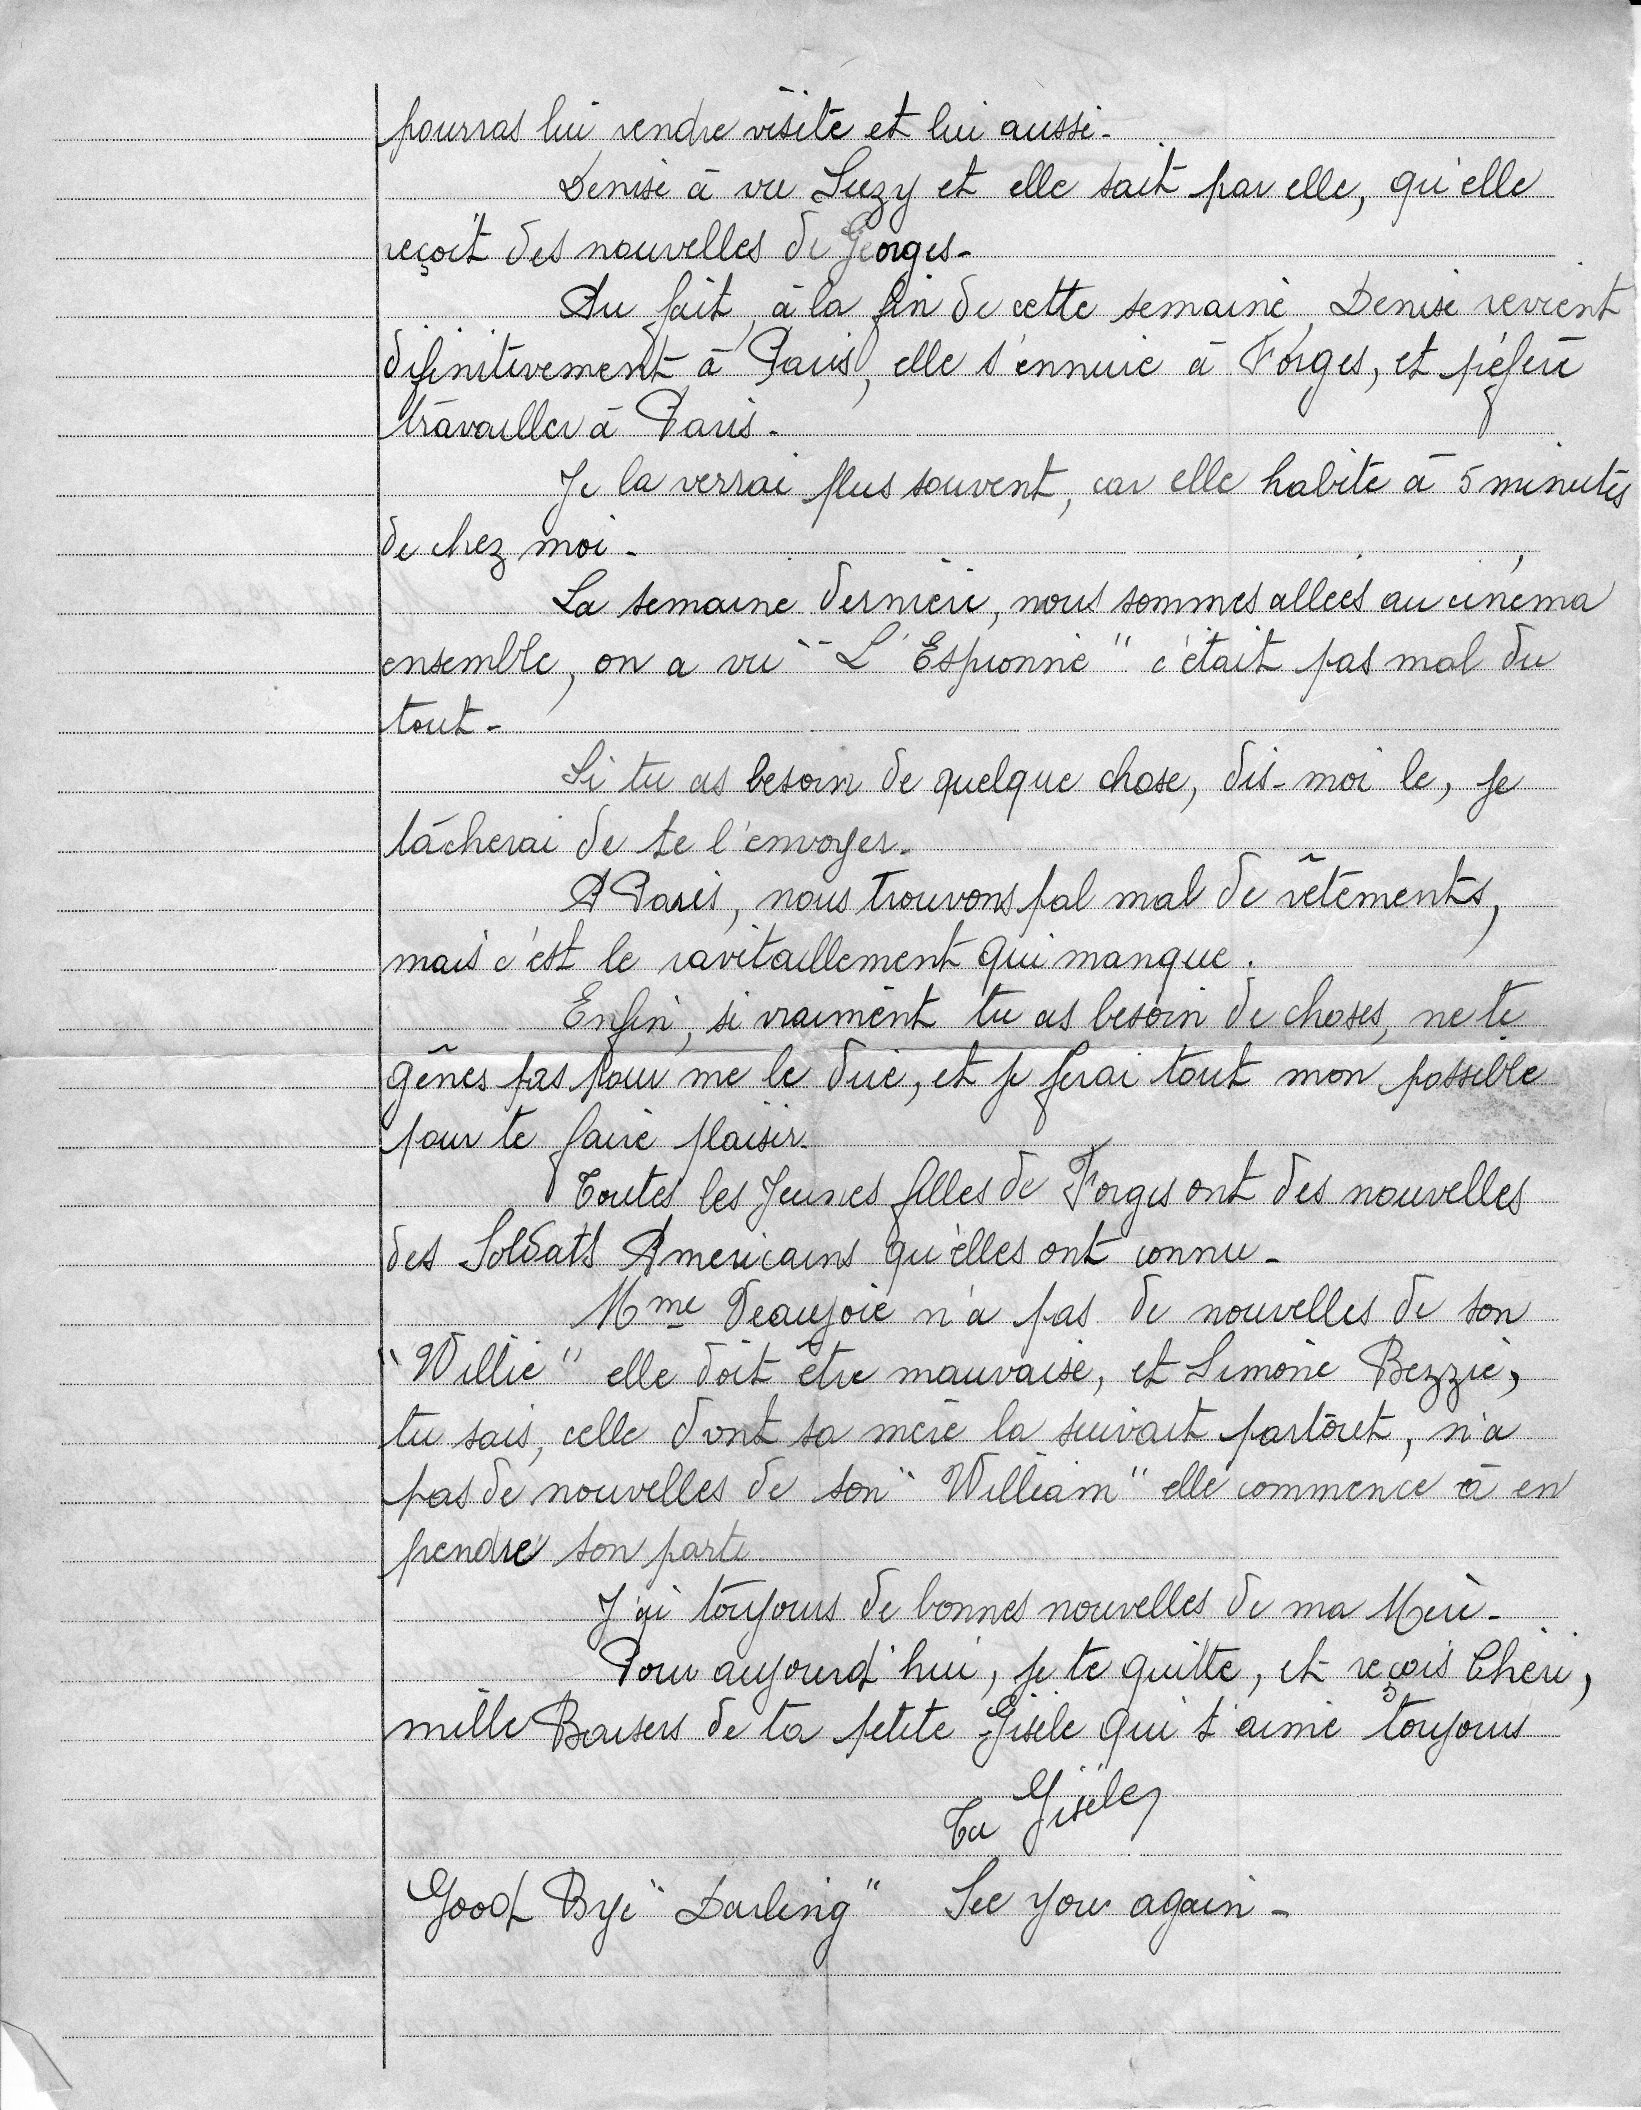 pourras lui rendre visite et lui aussi -
Denise à vu Suzy et elle sait par elle, qu'elle
reçoit des nouvelles de Georges -
Au fait, à la fin de cette semaine, Denise revient
difinitivement à Paris, elle s'ennuie à Forges, et péfère
travailler à Paris -
Je la verrai plus souvent, car elle habite à 5 minutes
de chez moi -
La semaine dernière, nous sommes allées au cinéma
ensemble, on a vu "L'Espionne" c'était pas mal du
tout -
Si tu as besoin de quelque chose, dis-moi le, je
tâcherai de te l'envoyer -
A Paris, nous trouvons pal mal de vêtements,
mais c'est le ravitaillement qui manque .
Enfin, si vraiment tu as besoin de choses, ne te
gênes pas pour me le dire, et je ferai tout mon possible
pour te faire plaisir -
Toutes les Jeunes filles de Forges ont des nouvelles
des Soldats Americains qu'elles ont connu -
Mme n'a pas de nouvelles de son
"Willie" elle doit être mauvaise, et Simone Bezzie,
tu sais, celle dont sa mère la suivait partout, n'a
pas de nouvelles de son "William" elle commence à en
prendre son parti
J'ai toujours de bonnes nouvelles de ma Mère -
Pour aujourd'hui, je te quitte, et reçois Chéri,
mille Baisers de ta petite Gisèle qui t'aime toujours
Ta Gisèle
Good Bye "Darling" See you again -